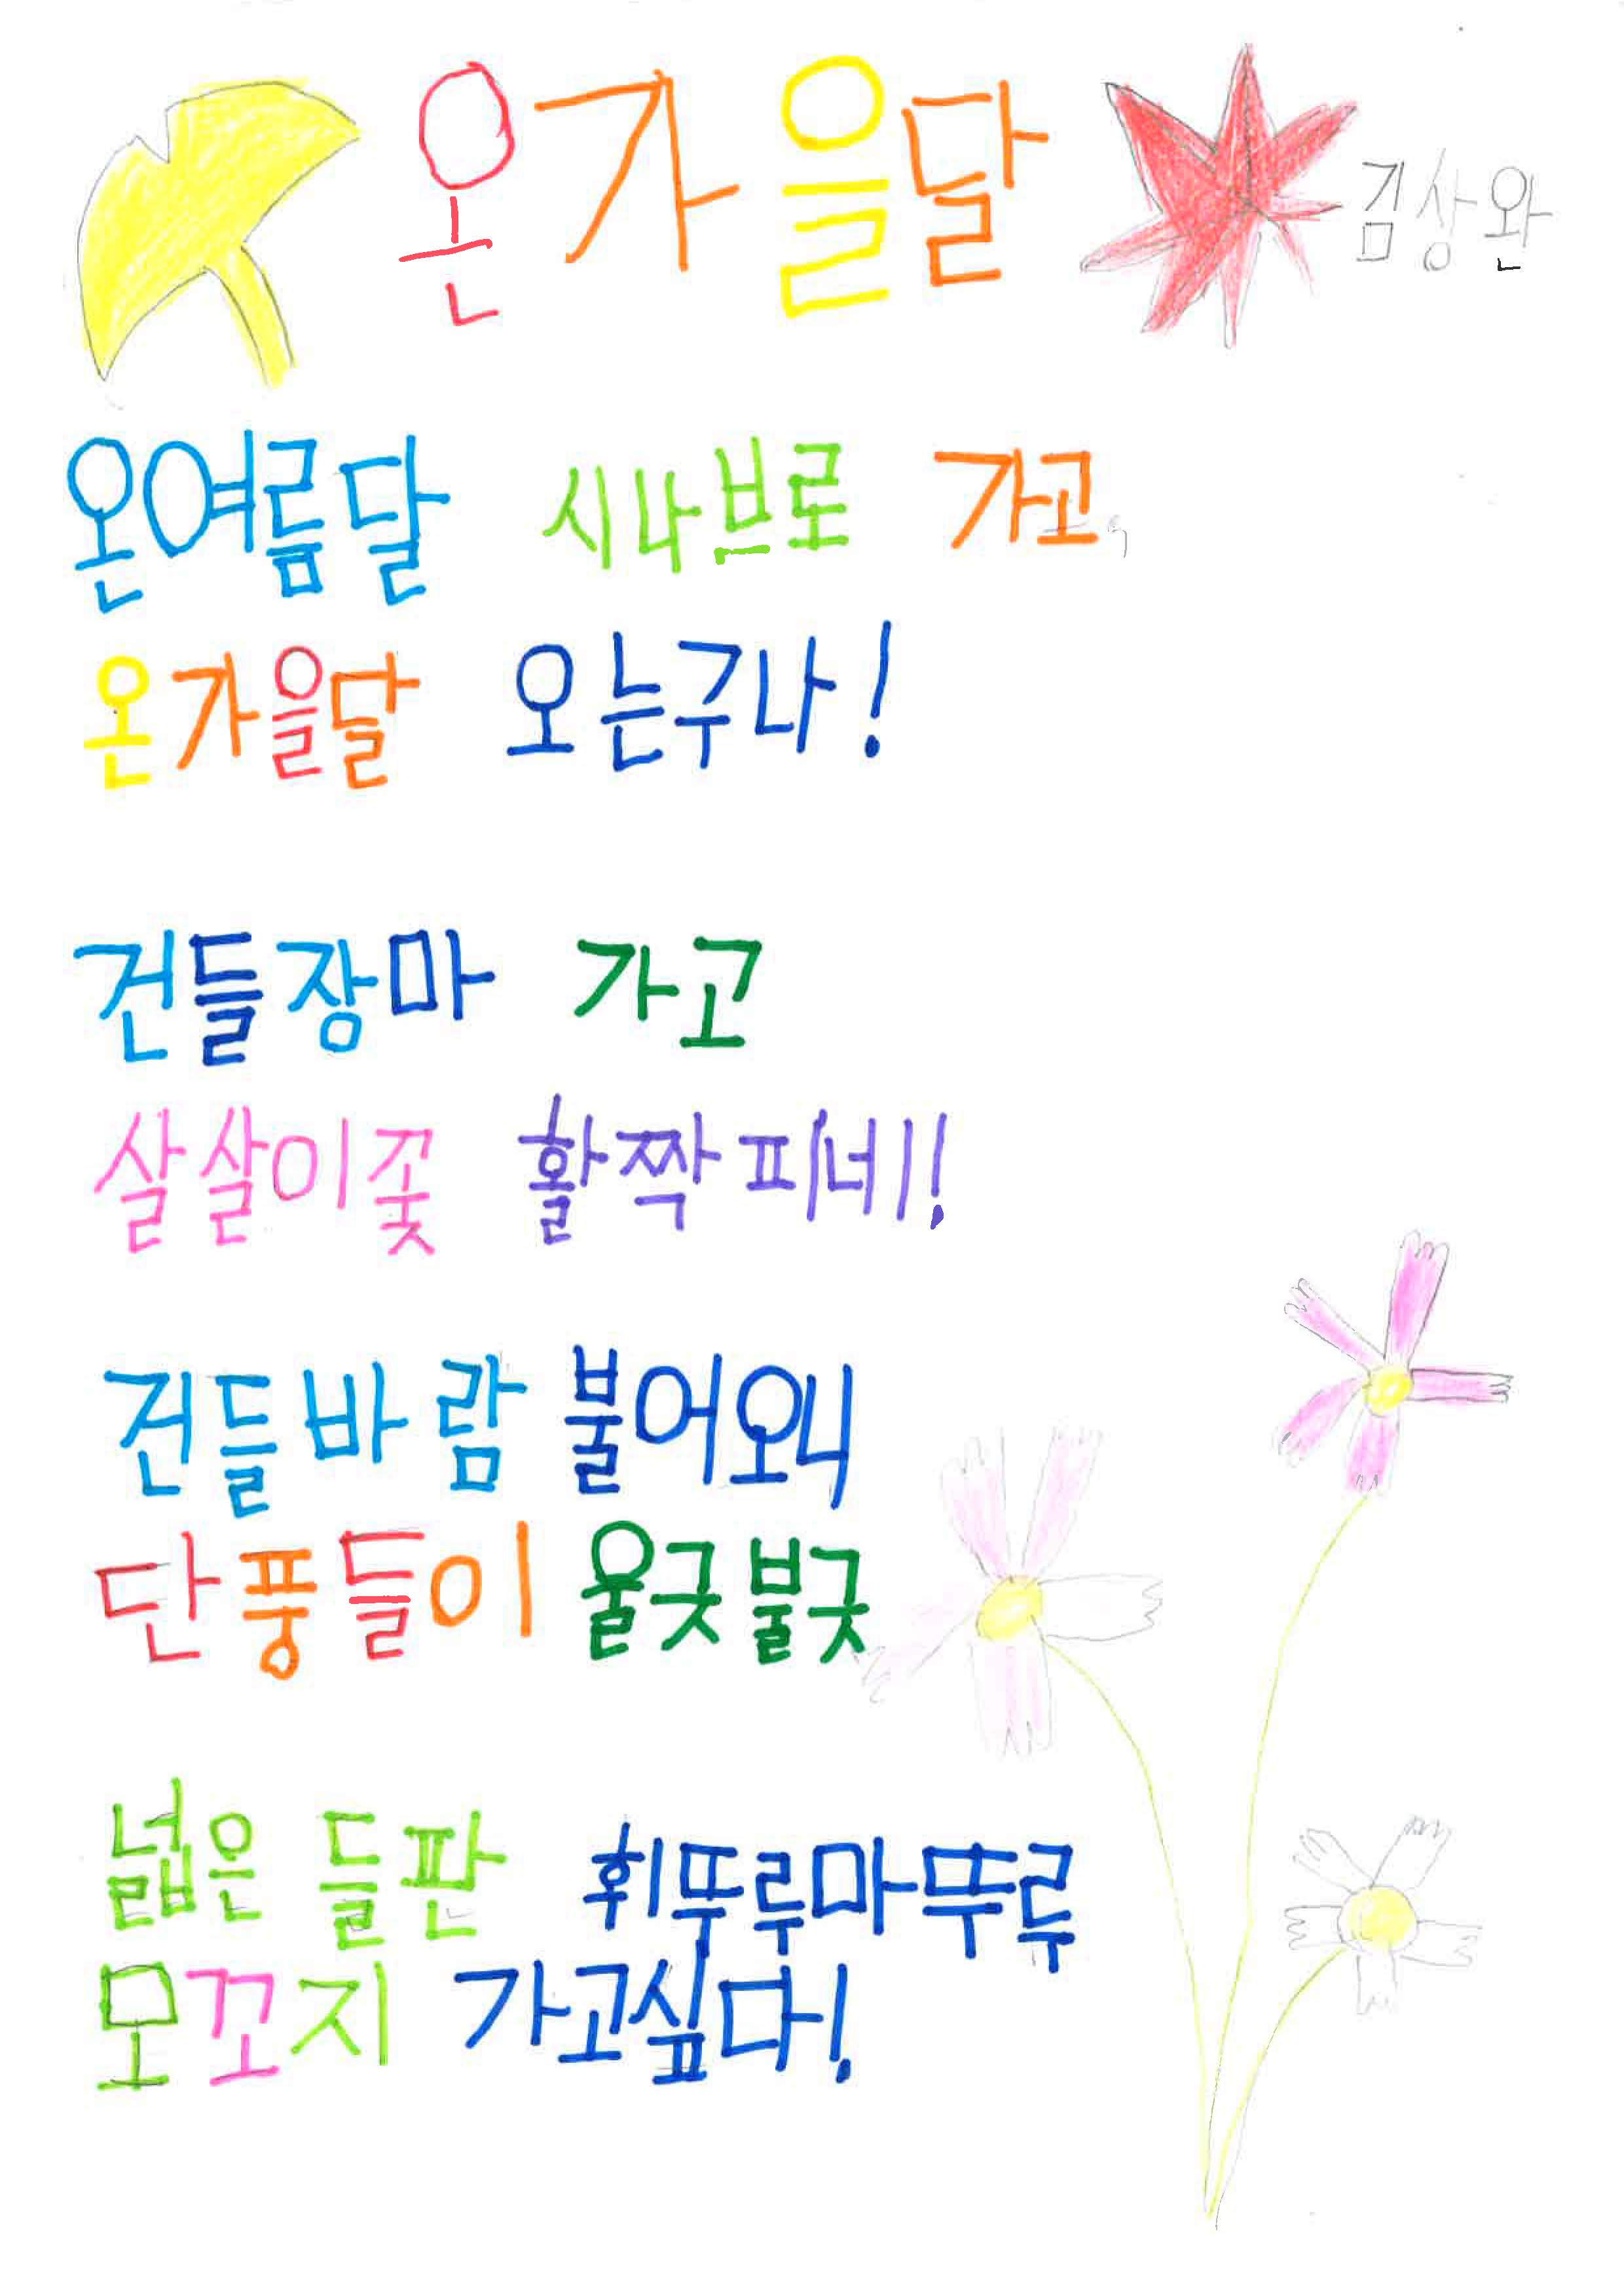 온가을달
김상완
온여름달 시나브로 가고,
온가을달 오는구나!
건들장마 가고
살살이꽃 활짝피네!
건들바람 불어오니
단풍들이 울긋불긋
넓은 들판 휘뚜루마뚜루
모꼬지 가고싶다!